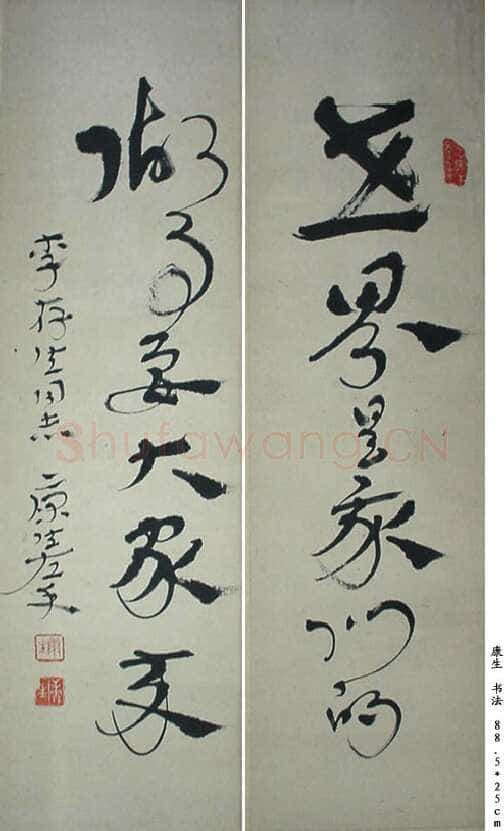 世界是我们的
做事要大家来
李存生同志 康生左手
Shufawang.CN
康生 书法 88.5*25cm